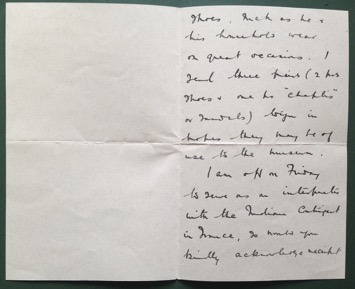 shoes, such as he &
his household wear
on great occasions. I
send three pairs (2 prs
shoes & one pr "chaplis"
or sandals) to you in
hopes they may be of
use to the museum.
I am off on Friday
to serve as an interpreter
with the Indian Contingent
in France, so would you
kindly acknowledge receipt